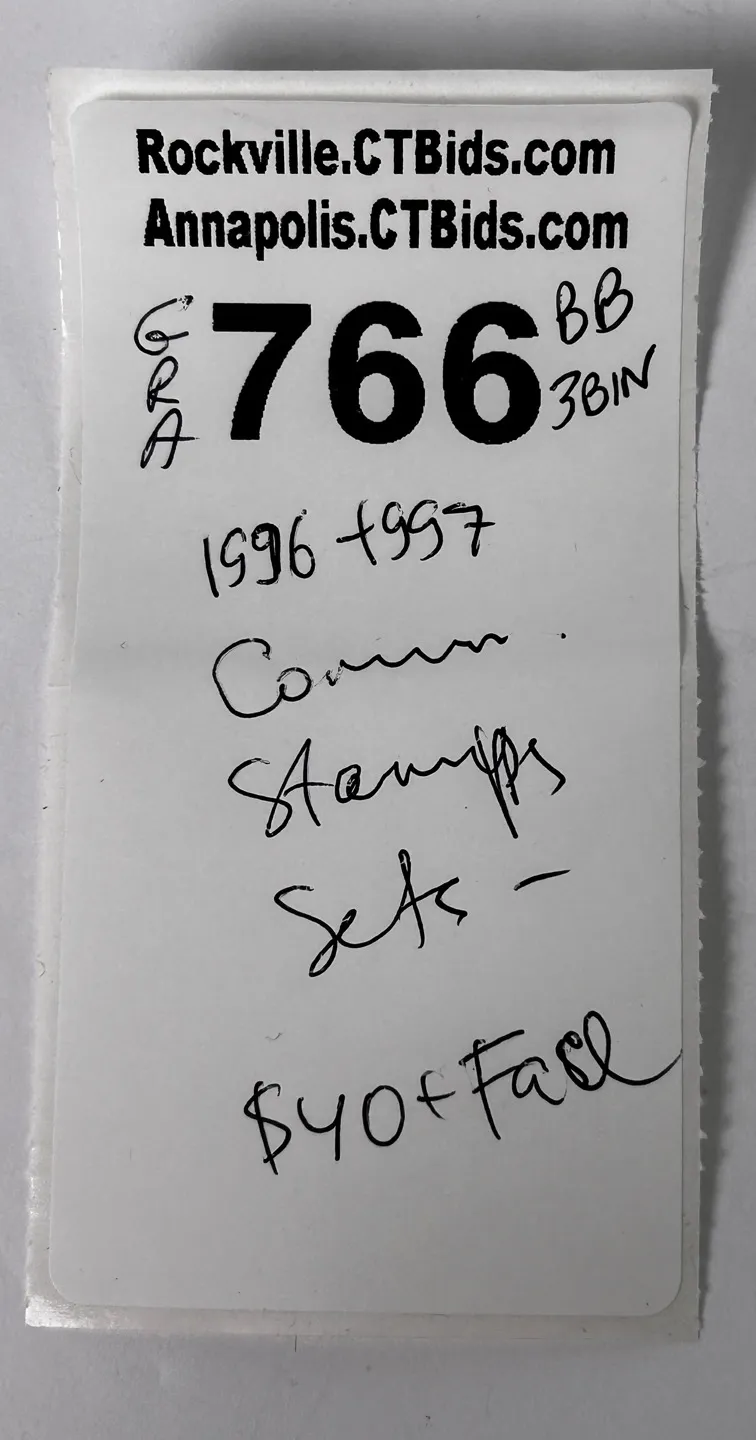 Rockville.CTBids.com
Annapolis.CTBids.com
GRA 766 BB
3BIN
1996 + 997
Comm.
Stamps
Sets -
$40+ Face